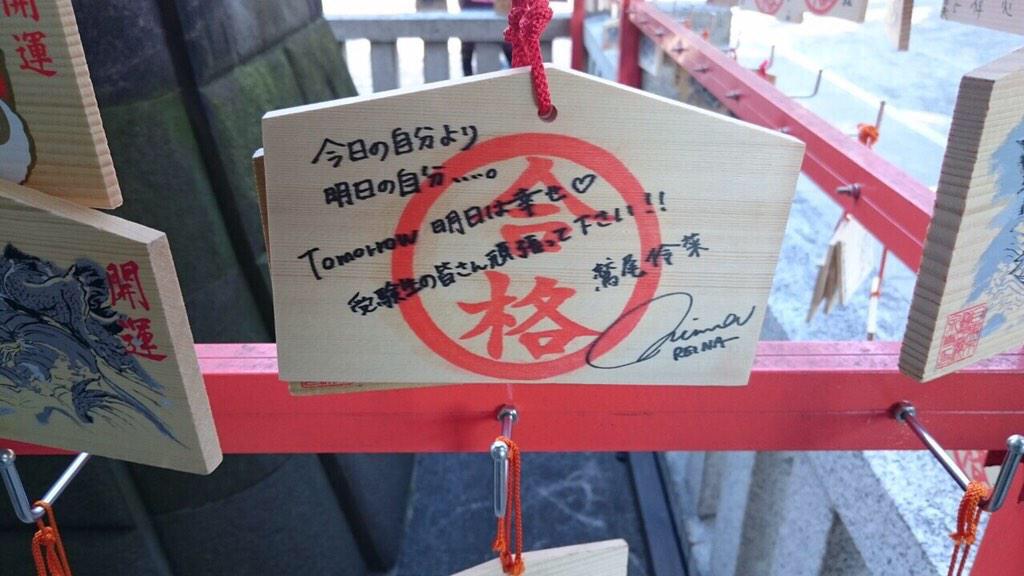 開運
開運
合格
今日の自分より
明日の自分……。
Tomorrow 明日は幸せ♡
受験生の皆さん頑張って下さい!!
鷲尾伶菜
REINA